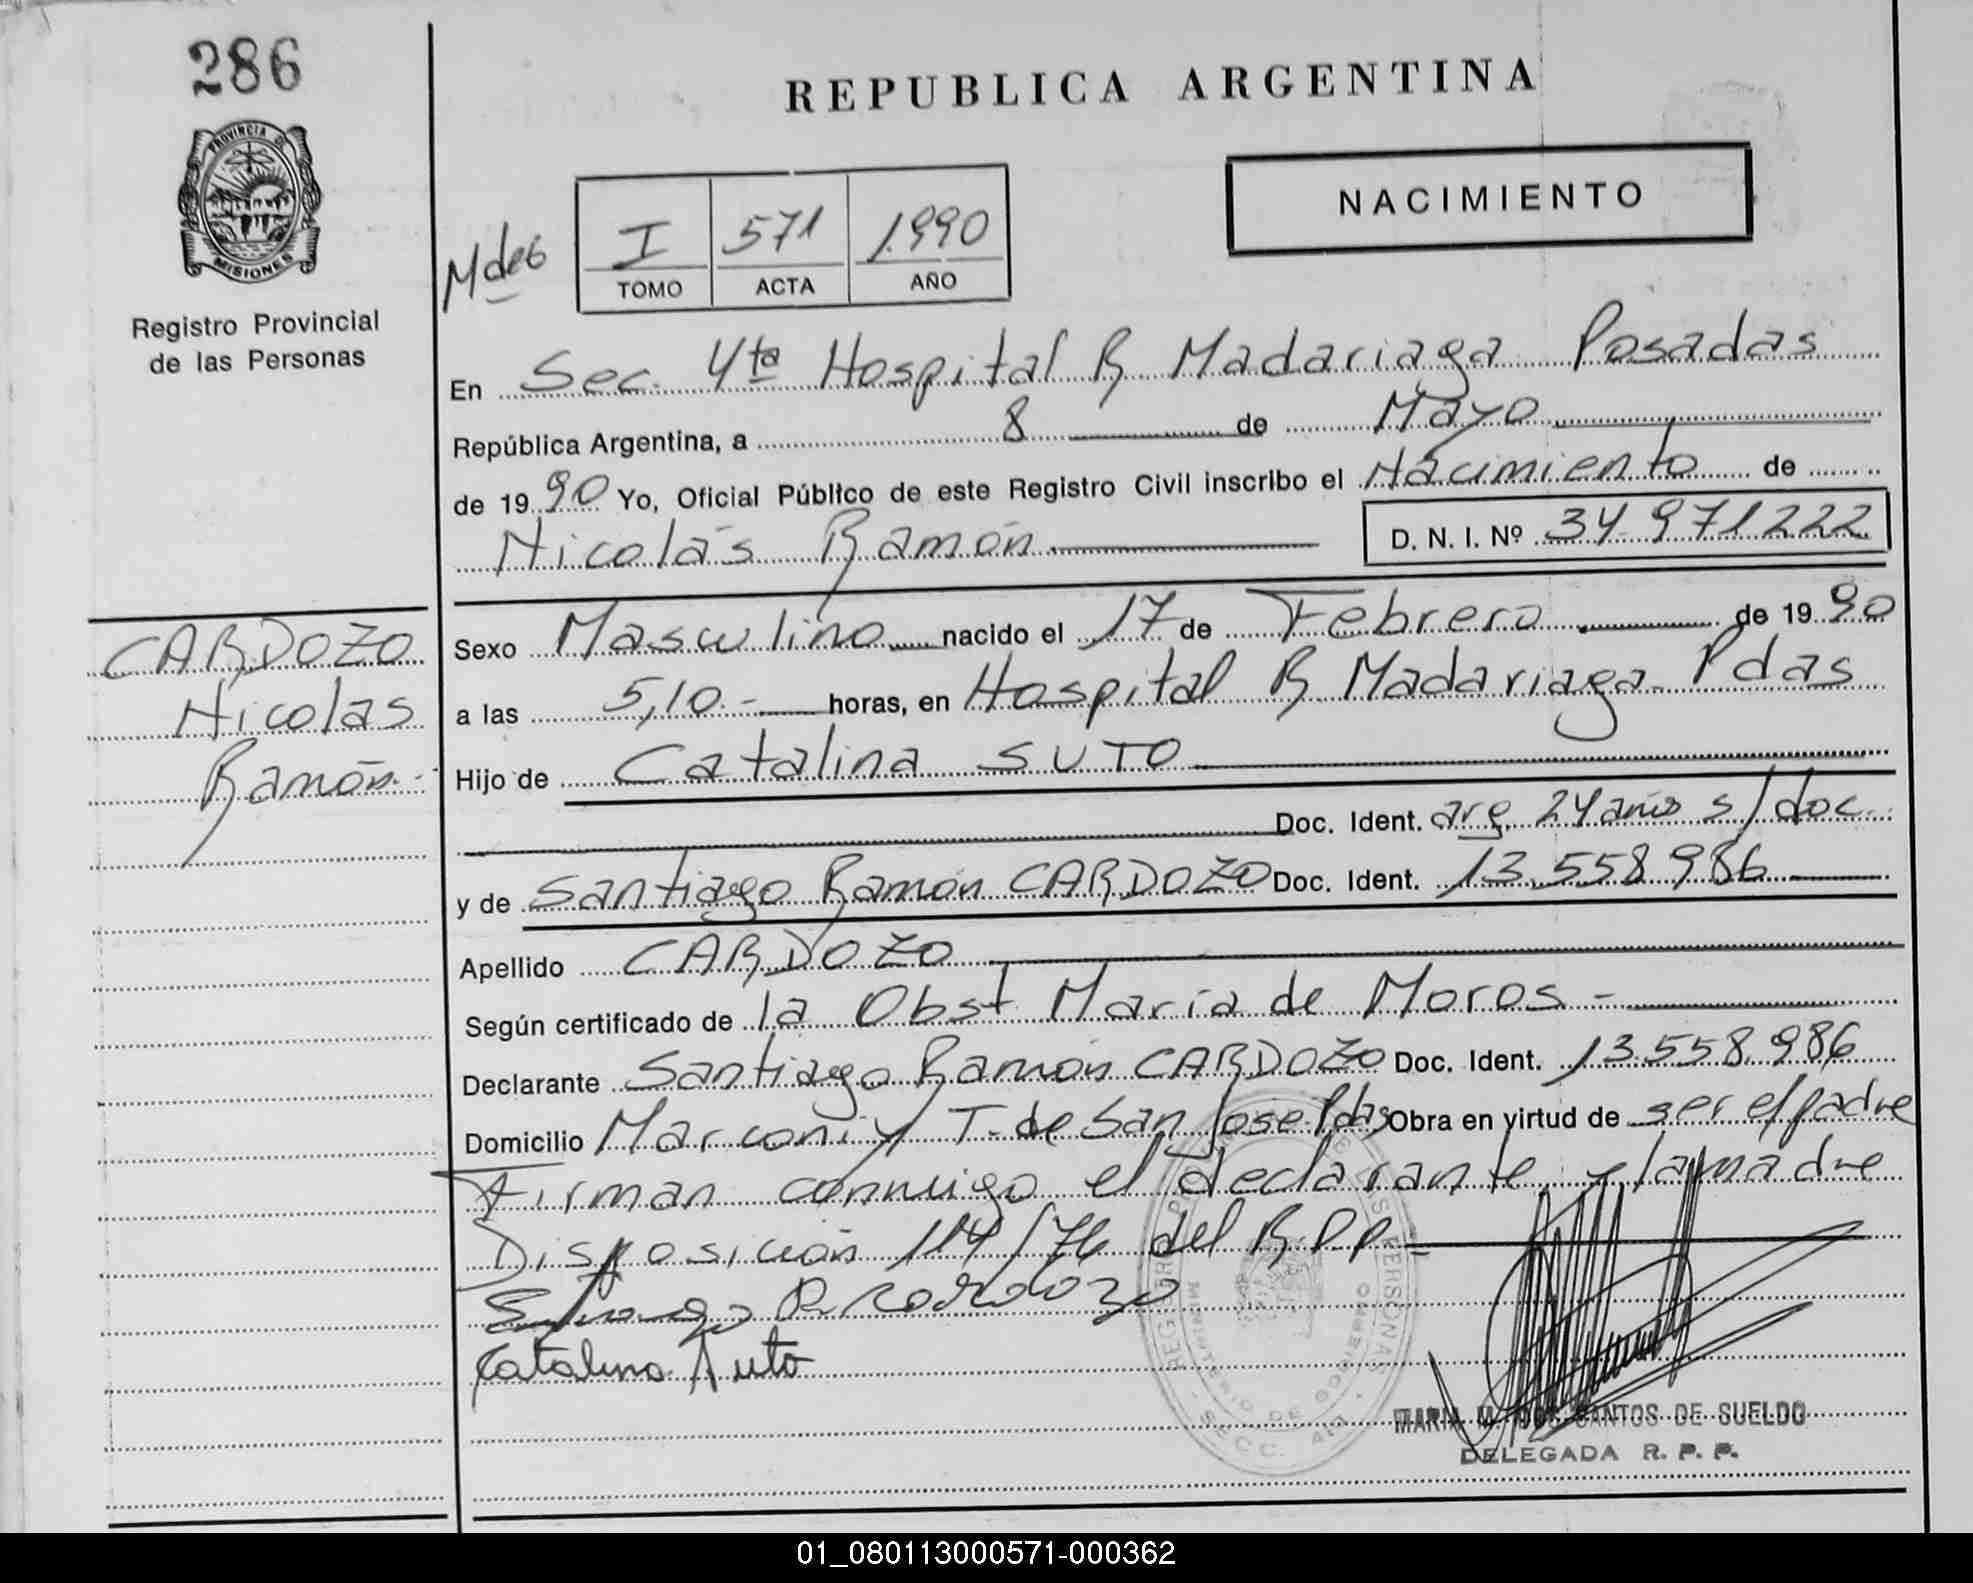 286
REPUBLICA ARGENTINA
PROVINCIA DE
MISIONES
NACIMIENTO
I 571 1.990
TOMO ACTA AÑO
Registro Provincial
de las Personas
En Sec. 4ta Hospital R Madariaga Posadas
República Argentina, a 8 de Mayo
de 19 90 Yo, Oficial Público de este Registro Civil inscribo el Nacimiento de
Nicolás Ramón D. N. I. Nº 34.971222
CARDOZO
Nicolas
Ramón.-
Sexo Masculino nacido el 17 de Febrero de 19 90
a las 5,10.- horas, en Hospital R Madariaga Pdas
Hijo de Catalina SUTO
Doc. Ident. arg. 24 años s/doc.
y de Santiago Ramón CARDOZO Doc. Ident. 13.558.986
Apellido CARDOZO
Según certificado de la Obst María de Moros -
Declarante Santiago Ramón CARDOZO Doc. Ident. 13.558.986
Domicilio Marconi y T. de San Jose Pdas Obra en virtud de ser el padre
Firman conmigo el declarante y la madre
Disposición 114/76 del R.P.P.
R Cardozo
Catalina Suto
REGISTRO DE LAS PERSONAS
MINISTERIO DE GOBIERNO
SECC. 4ta
MARIA M. DOS SANTOS DE SUELDO
DELEGADA R. P. P.
01_080113000571-000362